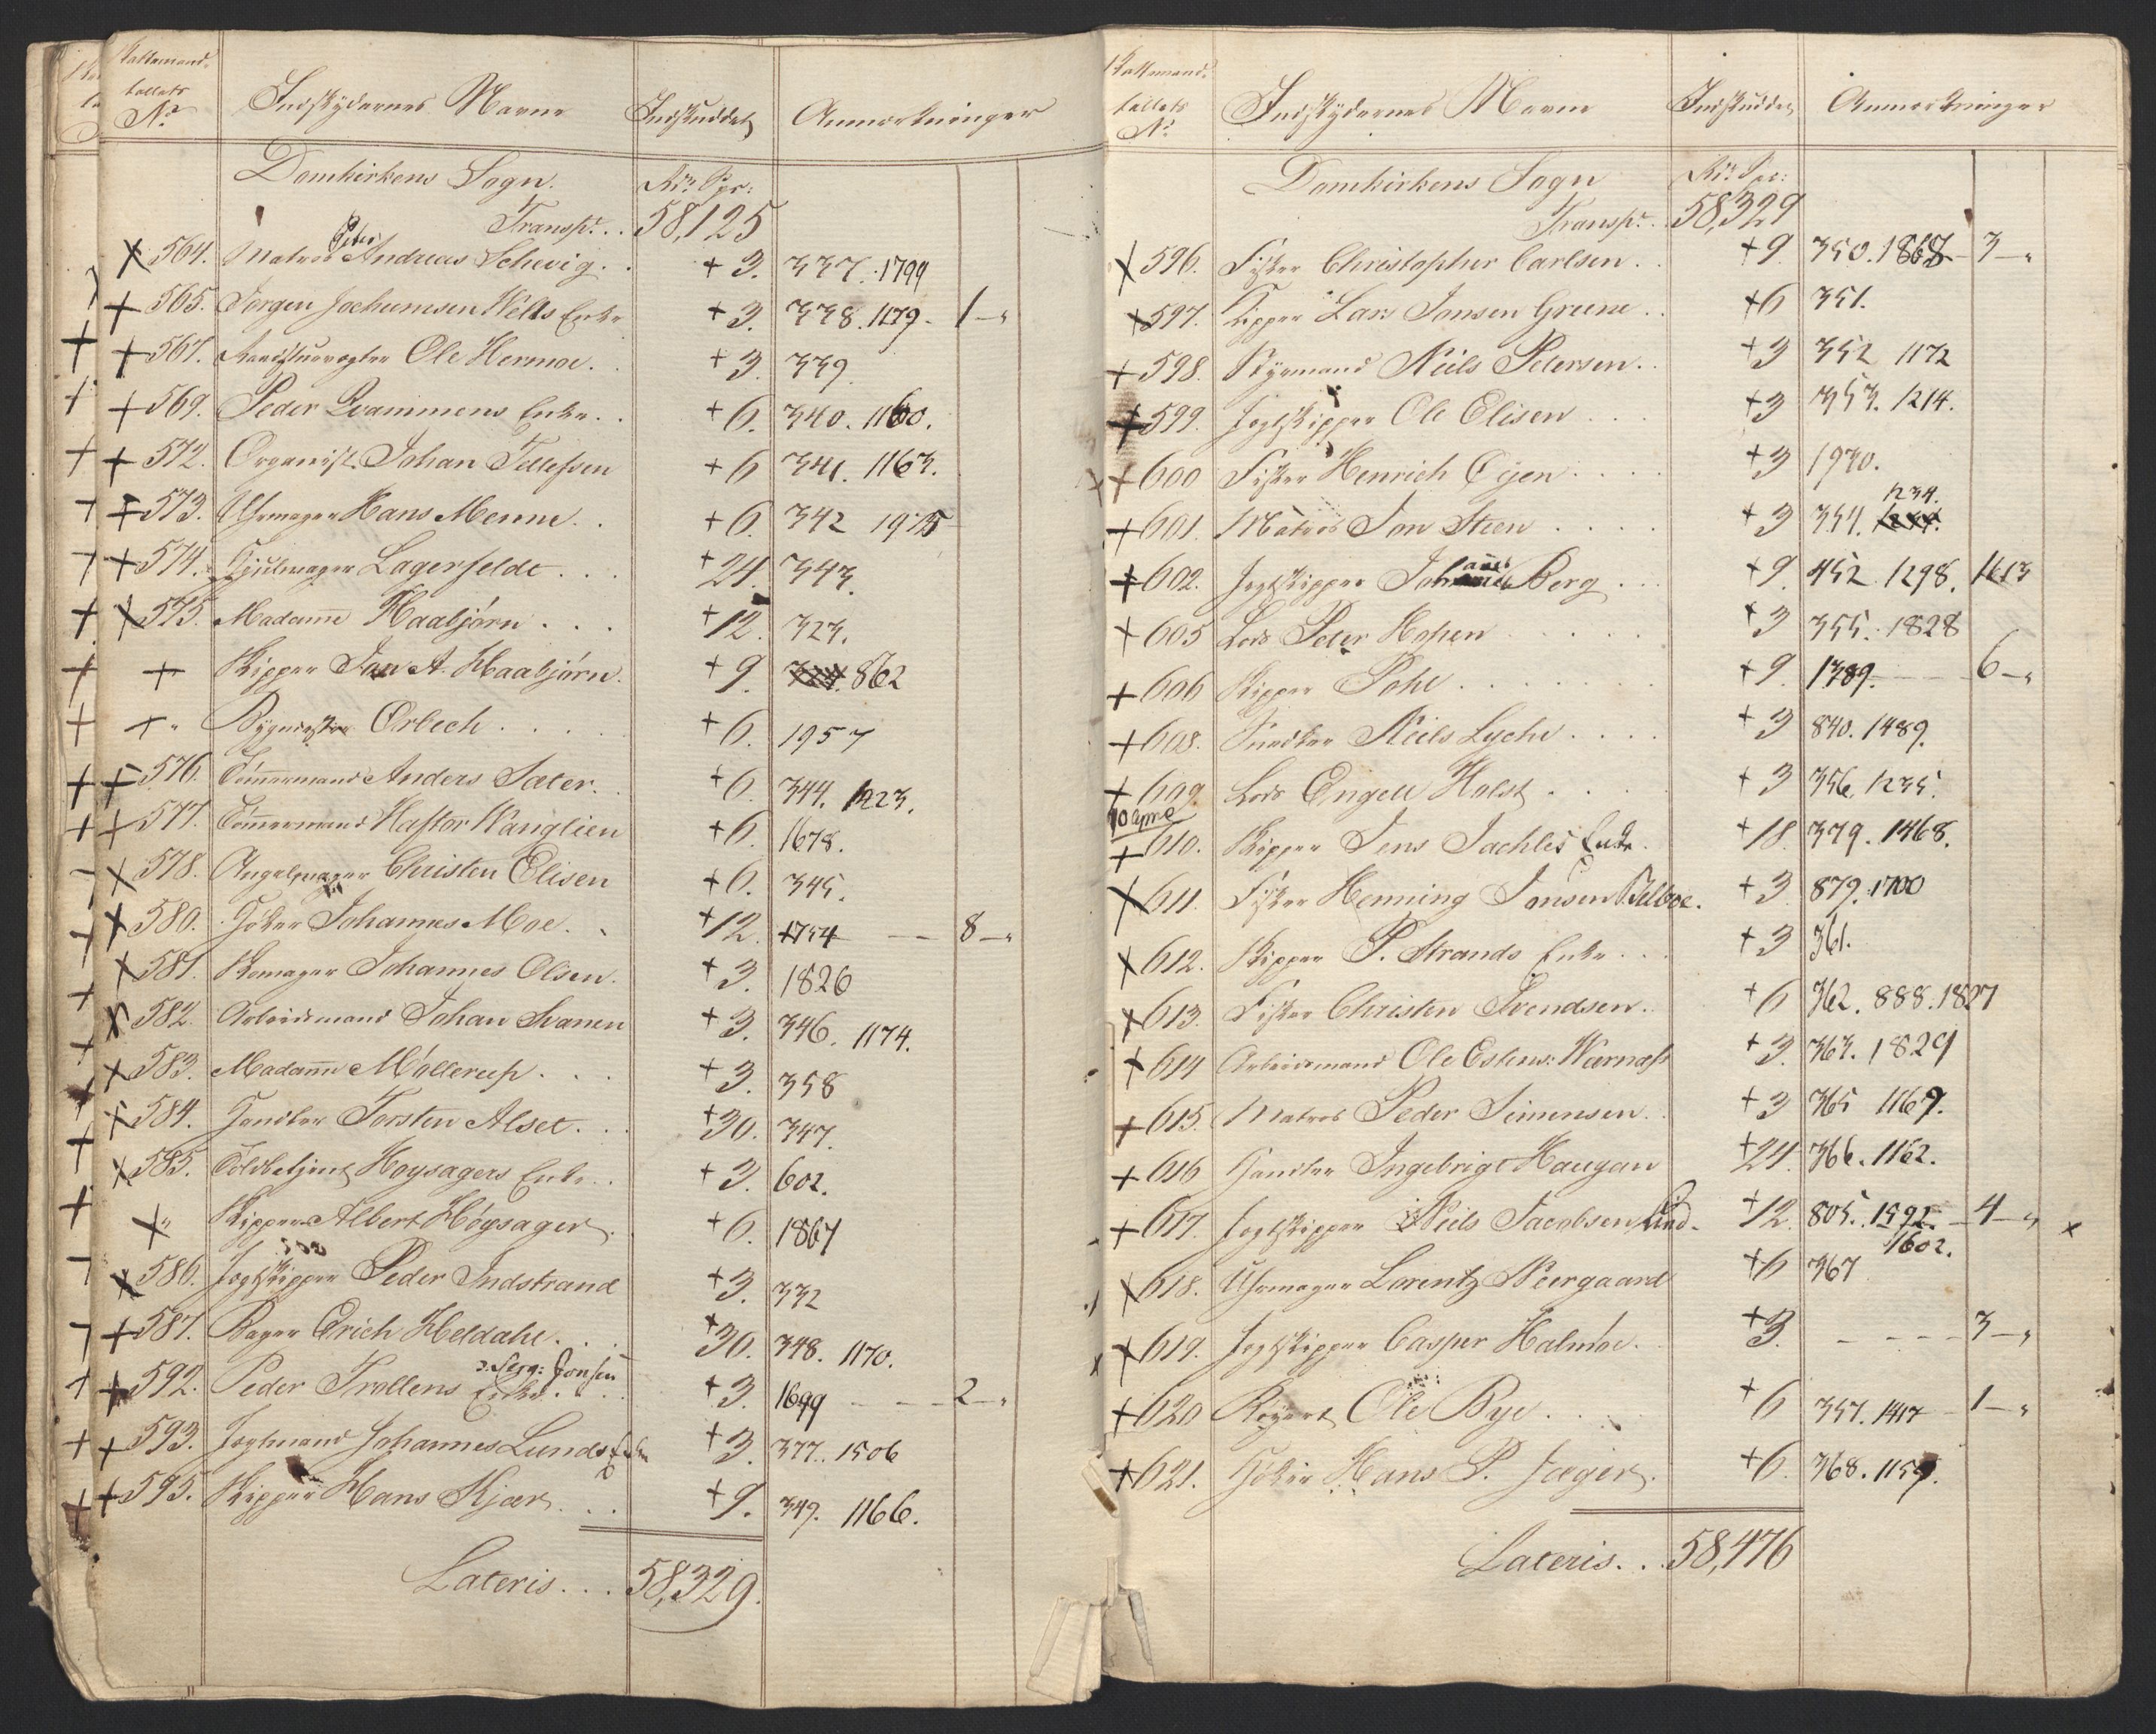 Skattemand-
tallets
No
Indskydernes Navne
Indskuddet
Anmærkninger
Domkirkens Sogn.
Rdr. Spec:
Transpt. . 58,125
564. Matros Peter Andreas Schevig. . +3. 337. 1799
565. Jørgen Jochumsen Wells Enke +3. 338. 1179. 1 -"
567. Raadstuevogter Ole Hermoe. . +3. 339.
569. Peder Qvammens Enke. . +6. 340. 1160.
572. Organist Johan Tellefsen +6 341. 1163.
573. Uhrmager Hans Menne. . +6. 342 1975
574. Hjulmager Lagerfeldt . . . +24. 343.
575. Madame Haabjørn . . . +12. 323.
+ Skipper Jan A. Haabjørn. +9. 862
+ " Bygmester Orbech . . . . +6. 1957
576. Tømmermand Anders Sæter. . +6. 344. 1223.
577. Tømmermand Haftor Wanglien +6. 1678.
578. Christen Elisen +6. 345.
580. Høker Johannes Moe. . +12. 1754 - - 8 -"
581. Skomager Johannes Olsen. +3. 1826
582. Arbeidsmand Johan Svanem +3. 346. 1174.
583. Madame Møllerup . . . +3. 358
584. Handler Torsten Alset. . . +30. 347.
585. Toldbetjent Høysagers Enke. . +3. 602.
" Skipper Albert Høysager. +6. 1867
586. Jagtskipper Peder Indstrand +3. 332
587. Bager Erich Heldahl. . . +30. 348. 1170.
592. Peder Trollens Enke. . . +3. 1699 - - - 2 -"
593. Jagtmand Johannes Lunds Enke +3. 377. 1506
595. Skipper Hans Kjær. . . +9. 349. 1166.
Lateris. . . 58,329.
Skattemand-
tallets
No
Indskydernes Navne
Indskuddet
Anmærkninger
Domkirkens Sogn
Rdr. Spec:
Transpt. . 58,329
596. Fisker Christopher Carlsen. . +9. 350. 1868 - 3 -"
597. Skipper Lars Jonsen Greene . . +6 351.
598. Styrmand Niels Petersen. . +3 352 1172
599. Jagtskipper Ole Elisen . . . +3 353. 1214.
600 Fisker Henrich Eijen . . . . +3 1930.
601. Matros Jon Steen . . . . +3 354. 1234.
602. Jagtskipper Berg . . +9. 452 1298. 1613
605 Lods Peter Hopen . . . . . +3 355. 1828
606 Skipper Pohl . . . . . . +9. 1389. - - - 6 -"
608. Snedker Niels Lyche . . . . +3 840. 1489.
609 Lods Engell Holst . . . . +3 356. 1235.
610. Skipper Jens Jachles Enke. +18. 379. 1468.
611. Fisker Henning Jonsen Selboe. +3 879. 1700
612. Skipper P. Strands Enke . . . +3 361.
613. Fisker Christen Svendsen. . +6 362. 888. 1827
614 Arbeidsmand Ole Estens: Wærnæss +3. 363. 1829
615. Matros Peder Simensen. . +3 365 1169.
616 Handler Ingebrigt Haugan +24. 366. 1162.
617. Jagtskipper Niels Jacobsen Lind. +12. 805. 1592. - 4 -" x
1602.
618. Uhrmager Lorentz Neergaard +6 367
619. Jagtskipper Casper Halmøe. +3. - - - - 3 -"
620 Ole Bye. . . . +6 357. 1417 - 1 -"
621. Høker Hans P. Jæger. +6. 368. 1159.
Lateris. . . 58,476